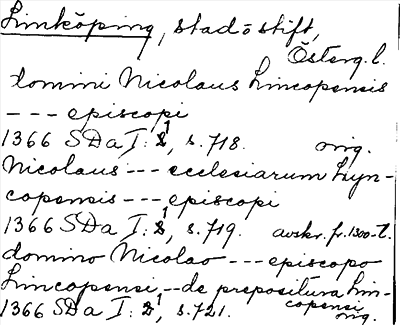 Linköping, stad o stift,
Österg.l.
domini Nicolaus Lincopensis
--- episcopi
1366 SDa I:1, s.718. orig.
Nicolaus --- ecclesiarum Lyn-
copensis --- episcopi
1366 SDa I:1, s.719. avskr. fr. 1300-t.
domino Nicolao --- episcopo
Lincopensi -- de prepositura Lin-
copensi
1366 SDa I:1, s.721. orig.